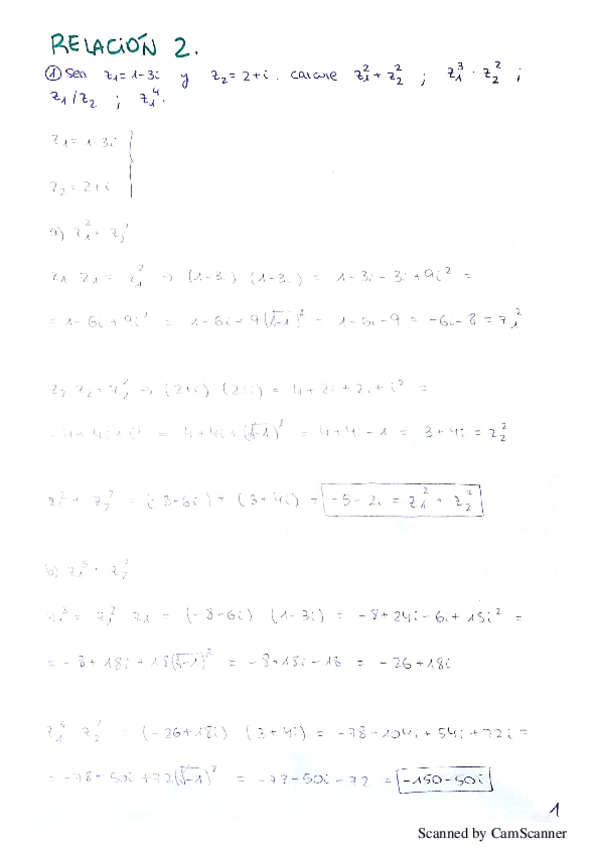 RELACIÓN 2.
① Sea z₁=1-3i y z₂=2+i. Calcule z₁²+z₂² ; z₁³·z₂² ;
z₁/z₂ ; z₁⁴.
z₁=1-3i
z₂=2+i
a) z₁²+z₂²
z₁ z₁ = z₁² → (1-3i) (1-3i) = 1-3i-3i+9i² =
= 1-6i+9i² = 1-6i+9(√-1)² = 1-6i-9 = -6i-8 = z₁²
z₂ z₂ = z₂² → (2+i) (2+i) = 4+2i+2i+i² =
= 4+4i+i² = 4+4i+(√-1)² = 4+4i-1 = 3+4i = z₂²
z₁² + z₂² = (-8-6i) + (3+4i) = -5-2i = z₁² + z₂²
b) z₁³ · z₂²
z₁³ = z₁² z₁ = (-8-6i) (1-3i) = -8+24i-6i+18i² =
= -8+18i+18(√-1)² = -8+18i-18 = -26+18i
z₁³ z₂² = (-26+18i) (3+4i) = -78-104i+54i+72i =
= -78-50i+72(√-1)² = -78-50i-72 = -150-50i
1
Scanned by CamScanner